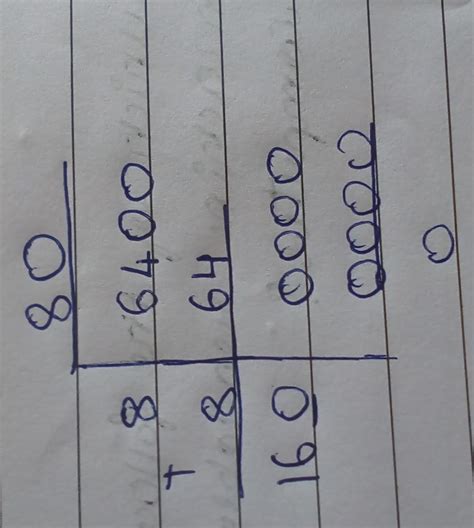 80
8 6400
+ 8 64
160 0000
0000
0